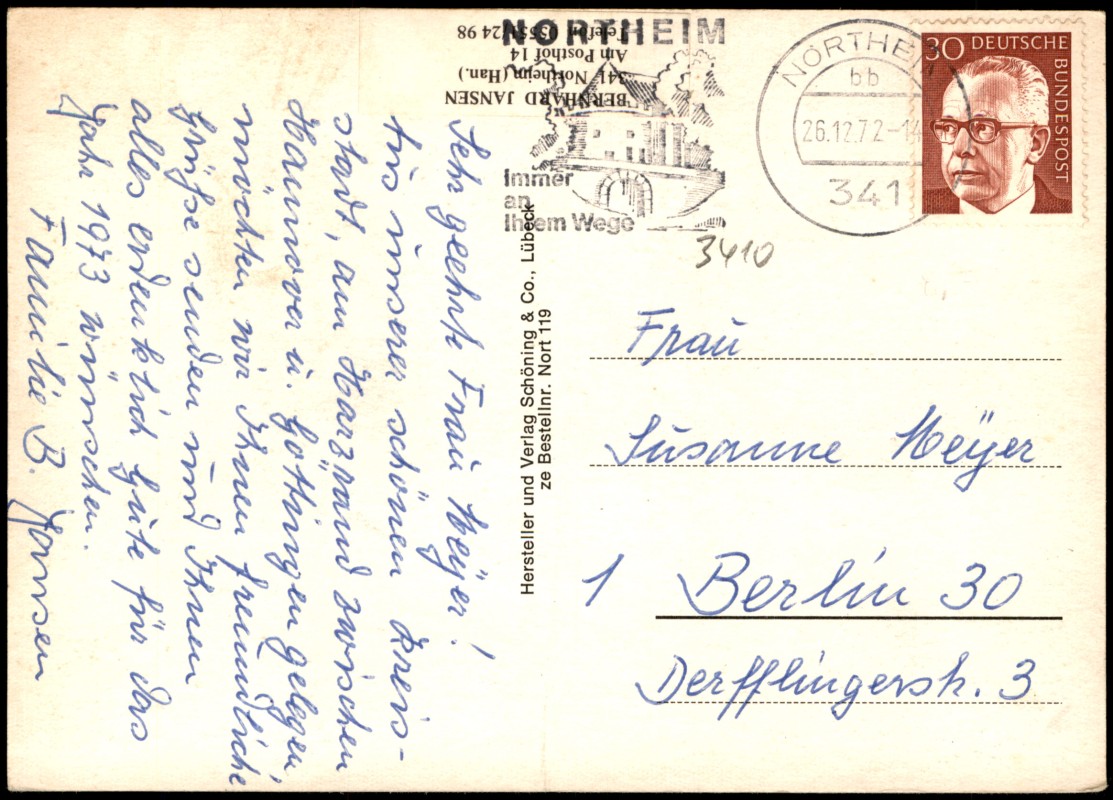 BERNHARD JANSEN
341 Northeim (Han.)
Am Posthof 14
NORTHEIM
Immer
an
Ihrem Wege
NORTHEIM
bb
26.12.72-14
341
30 DEUTSCHE
BUNDESPOST
3410
Sehr geehrte Frau Meÿer!
Aus unserer schönen Kreis-
stadt, am Harzrand zwischen
Hannover u. Göttingen gelegen
möchten wir Ihnen freundliche
Grüße senden und Ihnen
alles erdenklich Gute für das
Jahr 1973 wünschen.
Familie B. Jansen
Hersteller und Verlag Schöning & Co., Lübeck
ze Bestellnr. Nort 119
Frau
Susanne Meÿer
1 Berlin 30
Derfflingerstr. 3